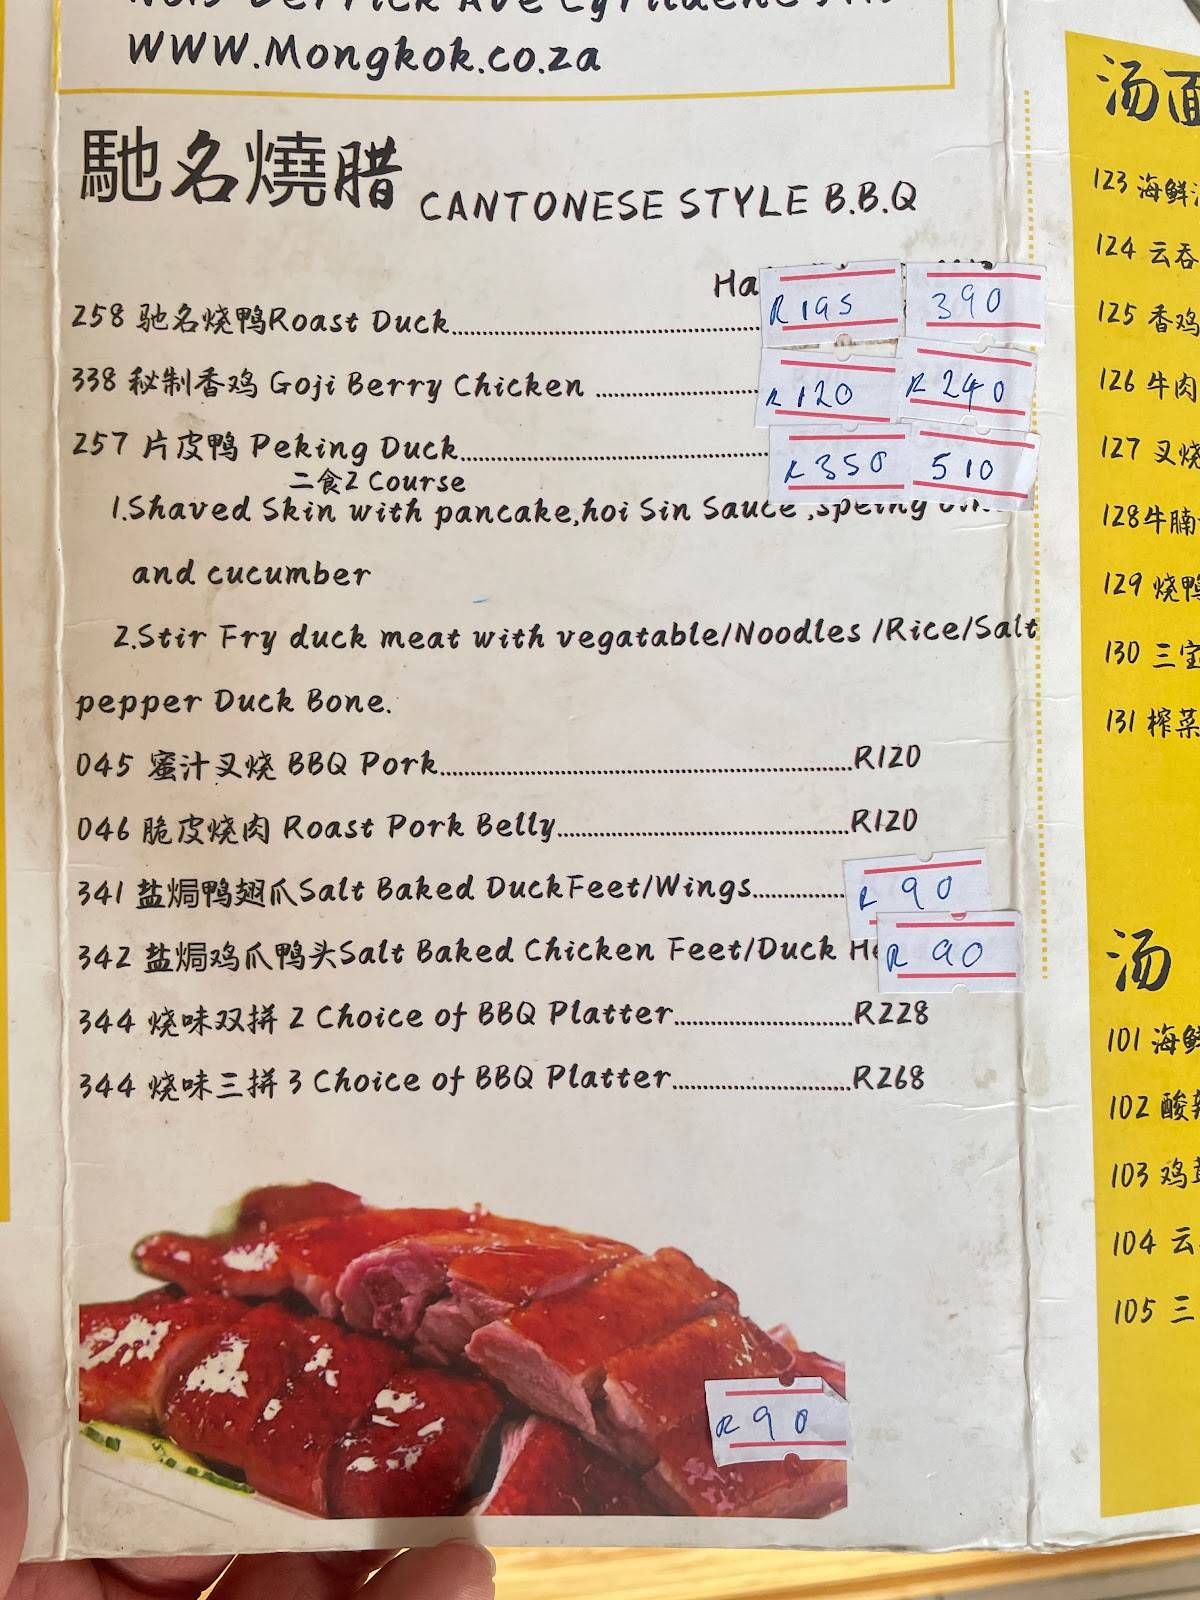 WWW.Mongkok.co.za
馳名燒腊 CANTONESE STYLE B.B.Q
258 驰名烧鸭Roast Duck R195 390
338 秘制香鸡 Goji Berry Chicken R120 R240
257 片皮鸭 Peking Duck R350 510
二食2 Course
1.Shaved Skin with pancake,hoi Sin Sauce
and cucumber
2.Stir Fry duck meat with vegatable/Noodles /Rice/Salt
pepper Duck Bone.
045 蜜汁叉烧 BBQ Pork R120
046 脆皮烧肉 Roast Pork Belly R120
341 盐焗鸭翅爪Salt Baked DuckFeet/Wings R 90
342 盐焗鸡爪鸭头Salt Baked Chicken Feet/Duck R 90
344 烧味双拼 2 Choice of BBQ Platter R228
344 烧味三拼 3 Choice of BBQ Platter R268
R90
汤面
123 海鲜
124 云吞
125 香鸡
126 牛肉
127 叉烧
128牛腩
129 烧鸭
130 三宝
131 榨菜
汤
101 海鲜
102 酸辣
103 鸡
104 云
105 三